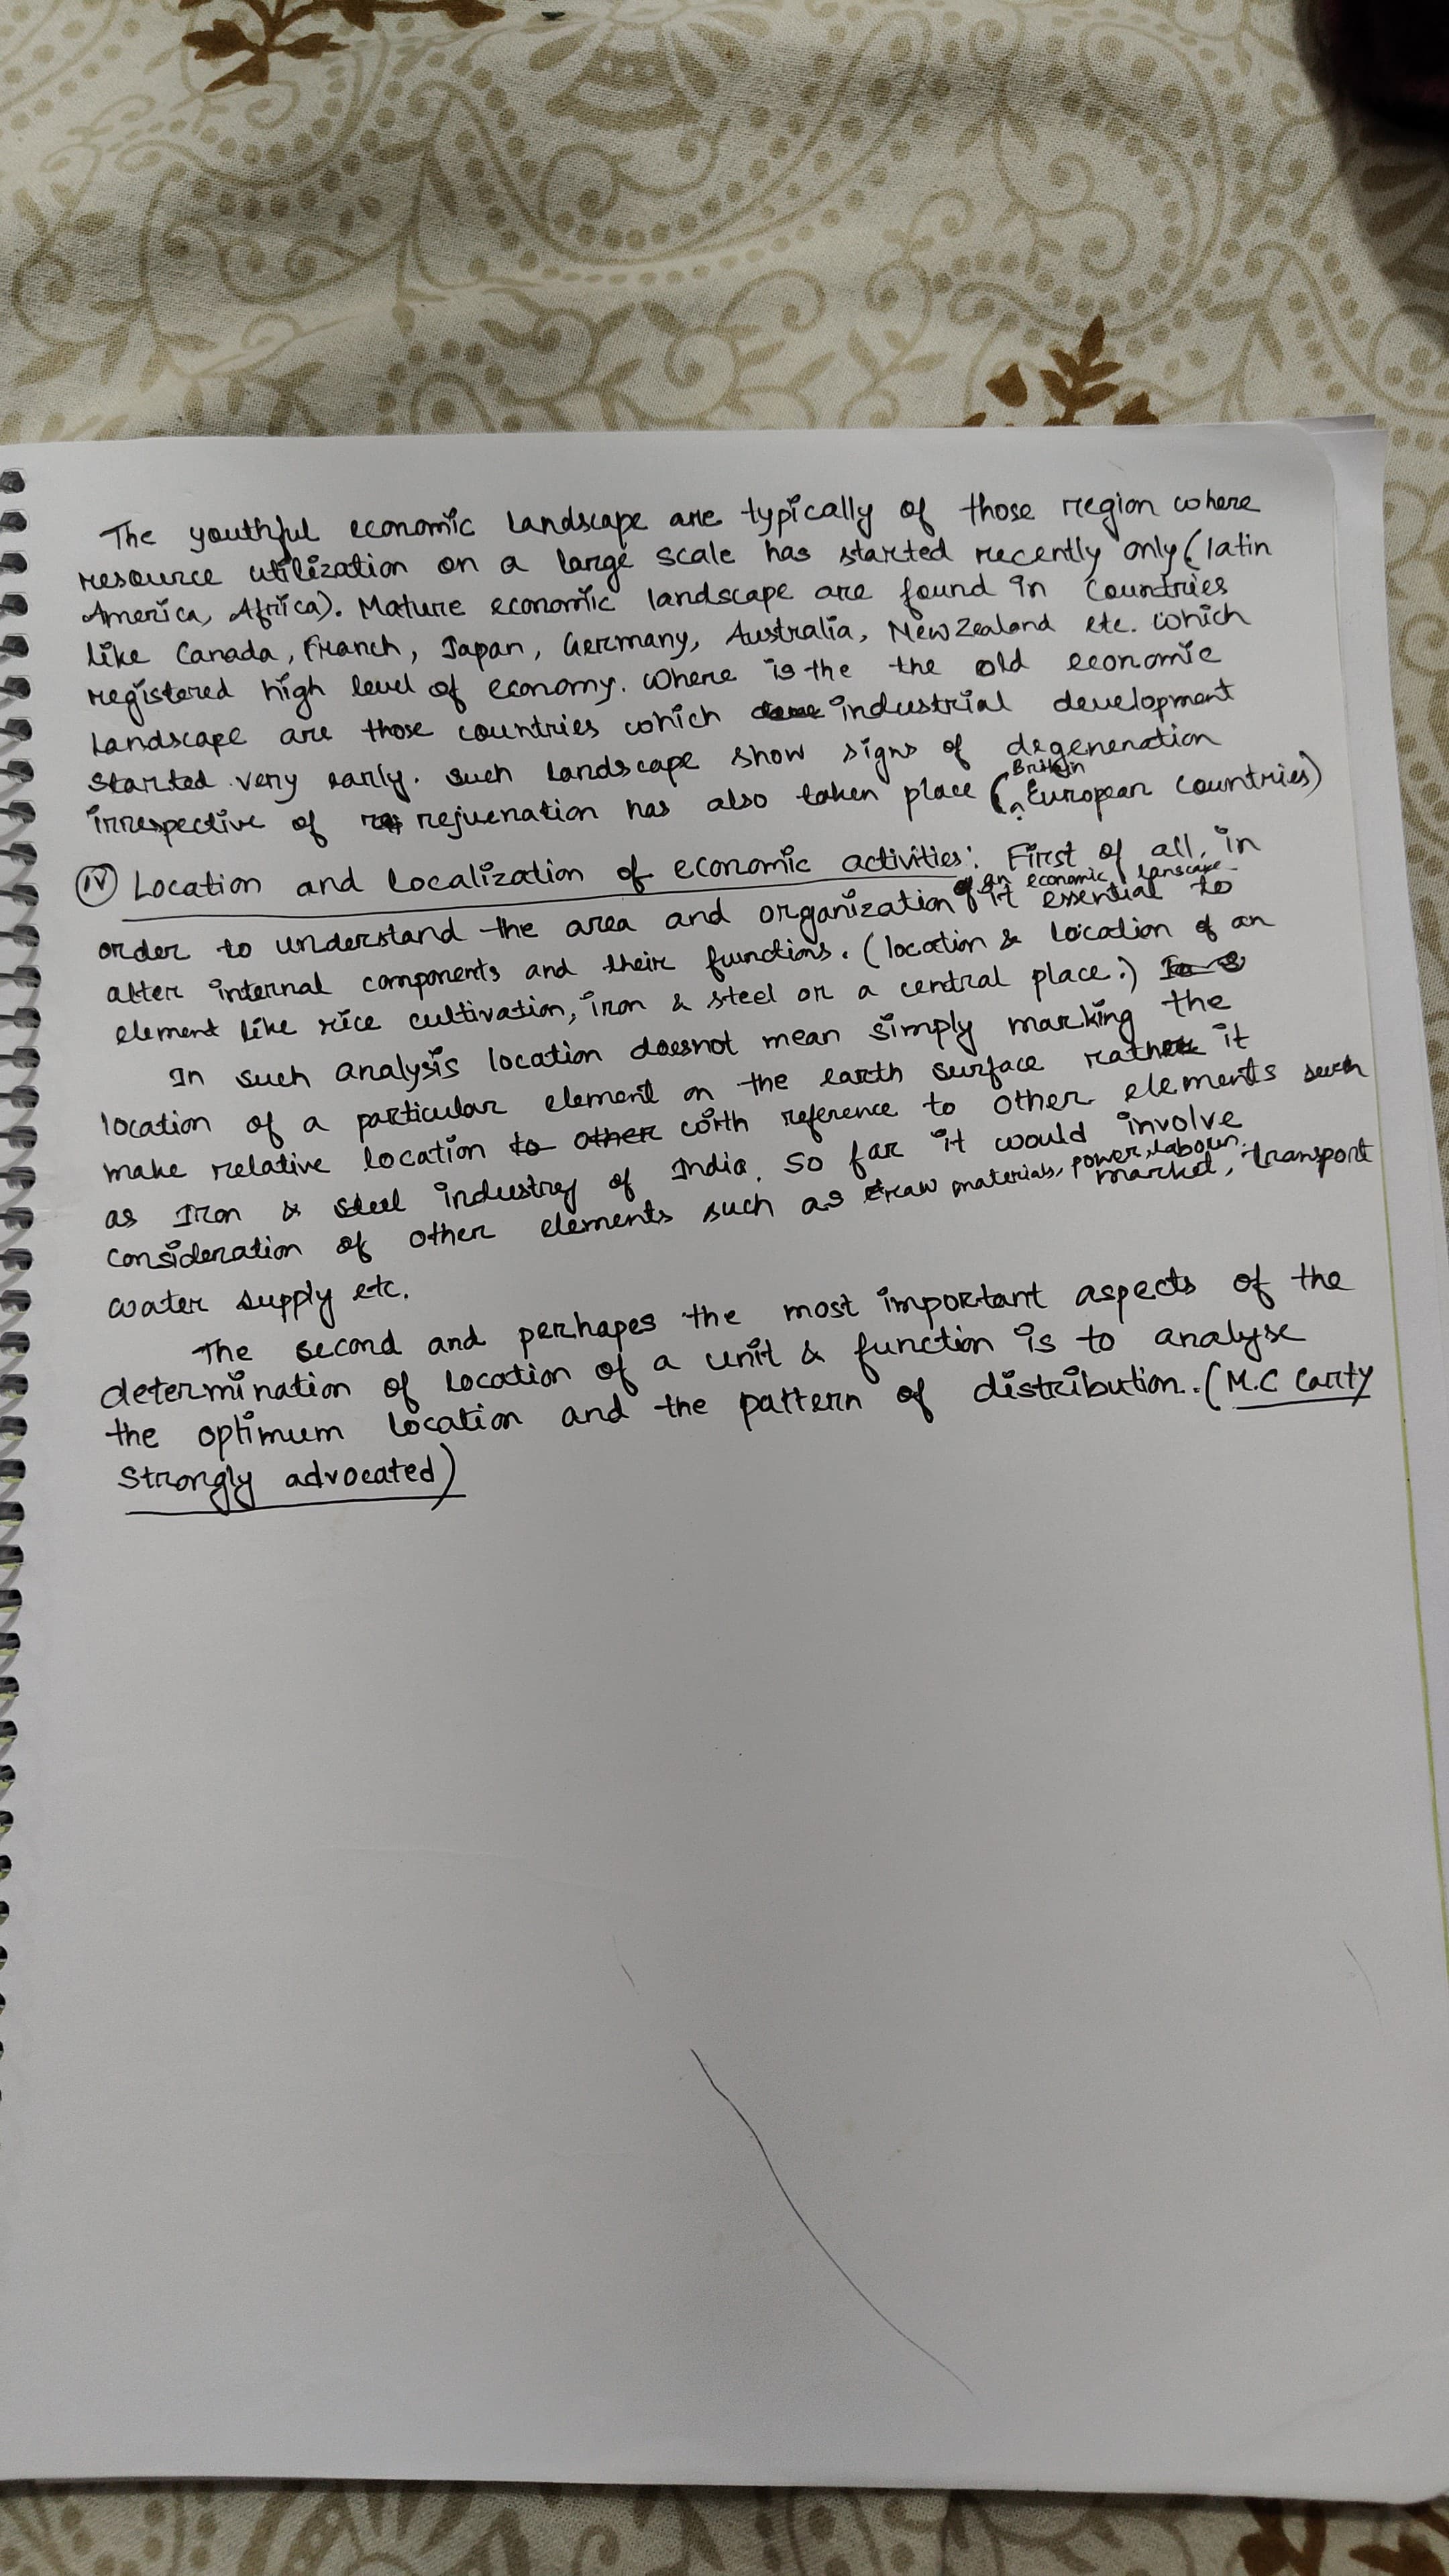 The youthful economic landscape are typically of those region where
resource utilization on a large scale has started recently only (latin
America, Africa). Mature economic landscape are found in Countries
like Canada, Franch, Japan, Germany, Australia, New Zealand etc. which
registered high level of economy. Where is the the old economic
landscape are those countries which industrial development
started very early. such landscape show signs of degeneration
irrespective of rejuenation has also taken place (Britain European countries)
(IV) Location and localization of economic activities: First of all, in
order to understand the area and organization of an economic lanscape it essential to
alter internal components and their functions. (location & location of an
element like rice cultivation, iron & steel or a central place.)
In such analysis location doesnot mean simply marking the
location of a particular element on the earth surface rather it
make relative location to other with reference to other elements such
as Iron & steel industry of India. So far it would involve
consideration of other elements such as raw materials, power, labour, market, transport
water supply etc.
The second and perhapes the most important aspects of the
determination of location of a unit & function is to analyse
the optimum location and the pattern of distribution. (M.C Carty
strongly advocated)